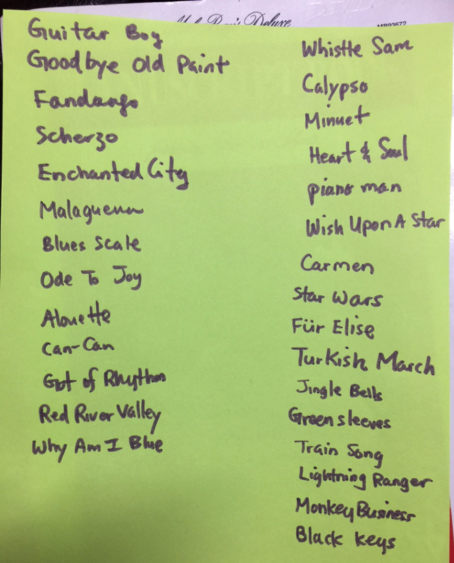 Guitar Boy
Goodbye Old Paint
Fandango
Scherzo
Enchanted City
Malaguena
Blues Scale
Ode To Joy
Alouette
Can-Can
Got of Rhythm
Red River Valley
Why Am I Blue
Whistle Sam
Calypso
Minuet
Heart & Soul
piano man
Wish Upon A Star
Carmen
Star Wars
Für Elise
Turkish March
Jingle Bells
Greensleeves
Train Song
Lightning Ranger
Monkey Business
Black Keys